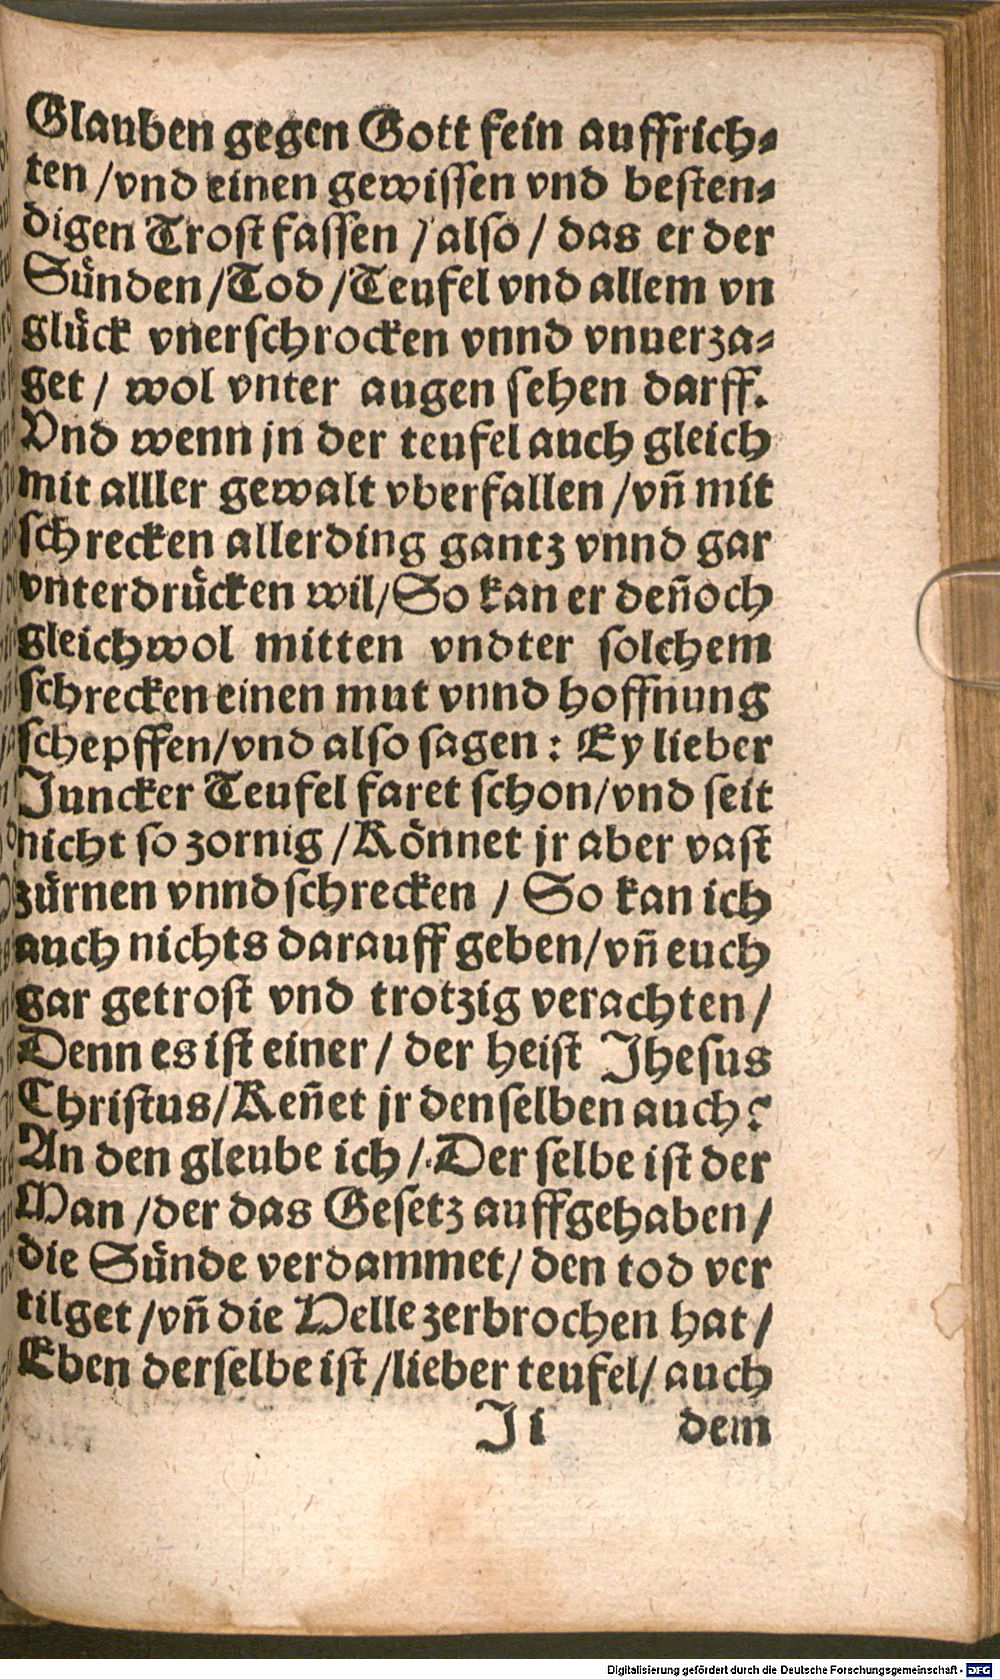 Glauben gegen Gott fein auffrich⸗
ten /vnd einen gewissen vnd besten⸗
digen Trost fassen / also / das er der
Sünden/Tod /Teufel vnd allem vn
glück vnerschrocken vnnd vnuerza⸗
get / wol vnter augen sehen darff.
Vnd wenn jn der teufel auch gleich
mit alller gewalt vberfallen /vñ mit
schrecken allerding gantz vnnd gar
vnterdrücken wil/So kan er deñoch
gleichwol mitten vndter solchem
schrecken einen mut vnnd hoffnung
schepffen/vnd also sagen : Ey lieber
Juncker Teufel faret schon/vnd seit
nicht so zornig /Könnet jr aber vast
zürnen vnnd schrecken / So kan ich
auch nichts darauff geben/vñ euch
gar getrost vnd trotzig verachten/
Denn es ist einer / der heist Jhesus
Christus/Keñet jr denselben auch?
An den gleube ich /.Der selbe ist der
Man /der das Gesetz auffgehaben/
die Sünde verdammet/ den tod ver
tilget /vñ die Helle zerbrochen hat/
Eben derselbe ist /lieber teufel/ auch
Ji dem
Digitalisierung gefördert durch die Deutsche Forschungsgemeinschaft - DFG